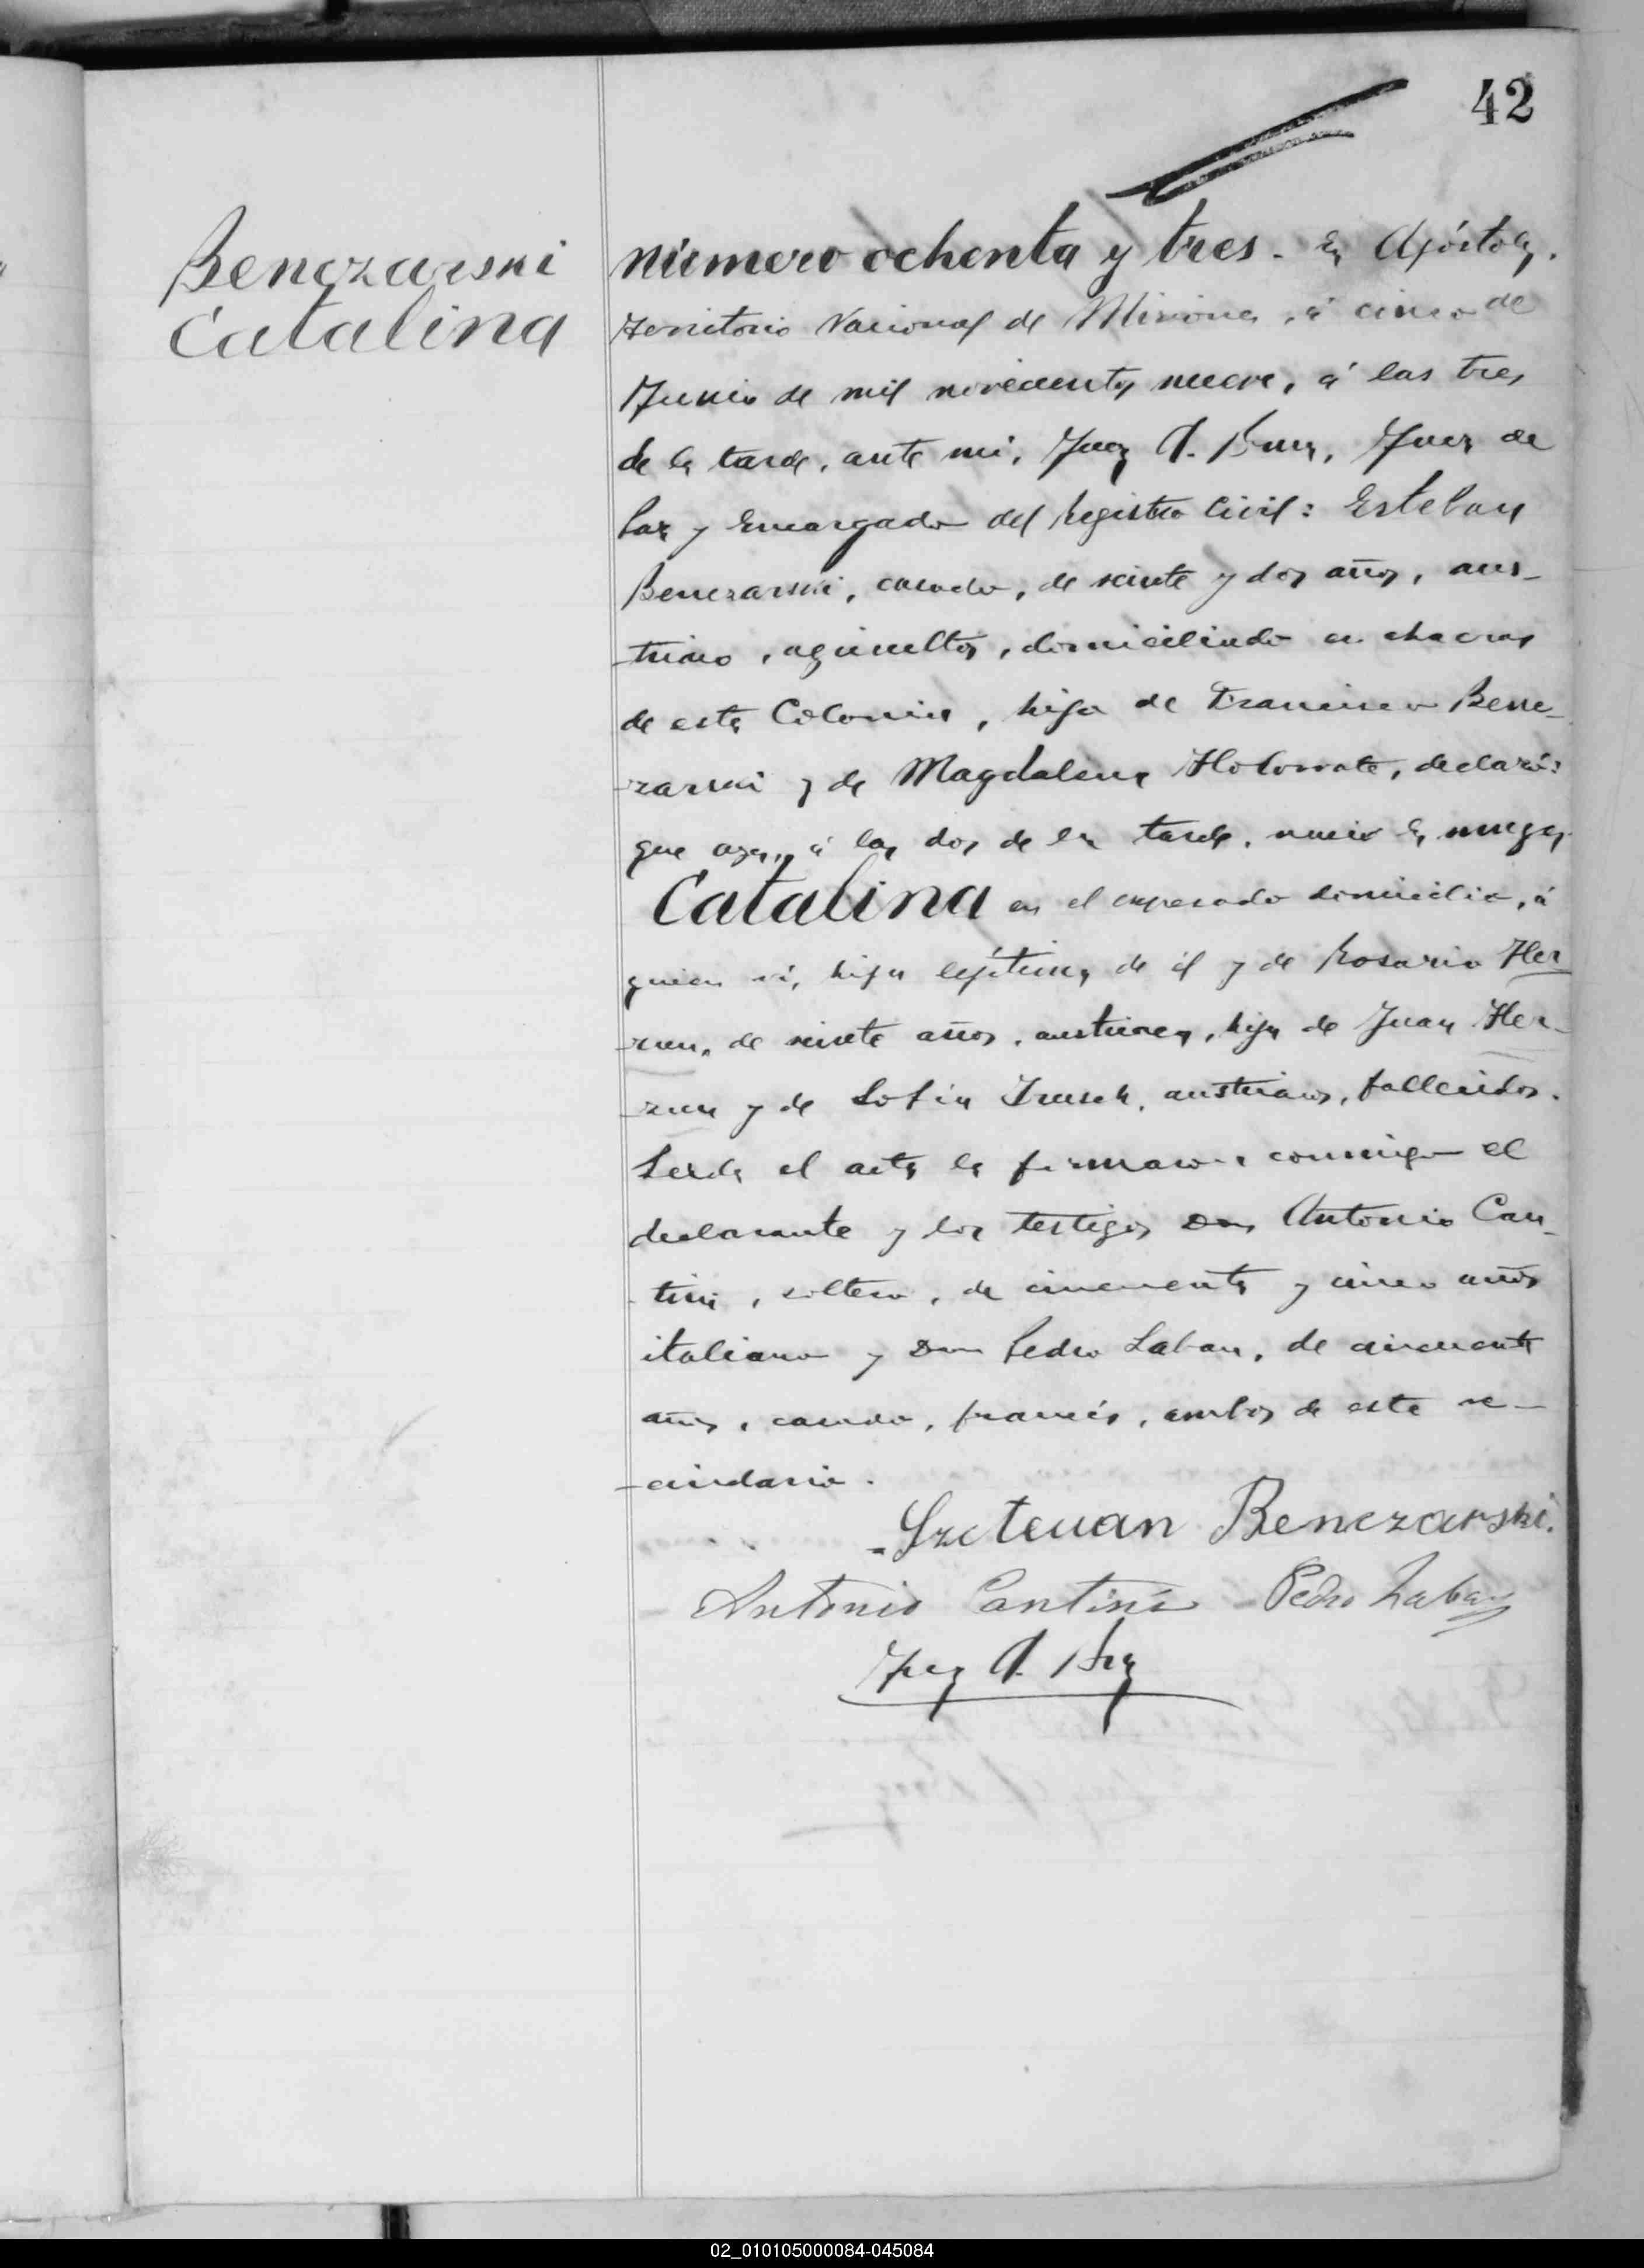 42
Benczarski
Catalina
Número ochenta y tres. En Apóstoles,
Territorio Nacional de Misiones, á cinco de
Junio de mil novecientos nueve, á las tres
de la tarde, ante mi, Juez de
Paz y Encargado del Registro Civil: Esteban
Benczarski, casado, de veinte y dos años, aus-
triaco, agricultor, domiciliado en chacras
de esta Colonia, hijo de Francisco Benc-
zarski y de Magdalena declaró:
que ayer, á las dos de la tarde, nació la mujer
Catalina en el expresado domicilio, á
quien ví, hija legítima de él y de Rosario Her
-run, de veinte años, austriaca, hija de Juan Her-
run y de Sofia austriacos, fallecidos.
Leida el acta la firmaron conmigo el
declarante y los testigos Don Antonio Can-
tini, soltero, de cincuenta y cinco años
italiano y Don Pedro Laban, de cincuenta
años, casado, francés, ambos de este ve-
-cindario.
Benczarski.
Antonio Cantini Pedro Laban
02_010105000084-045084